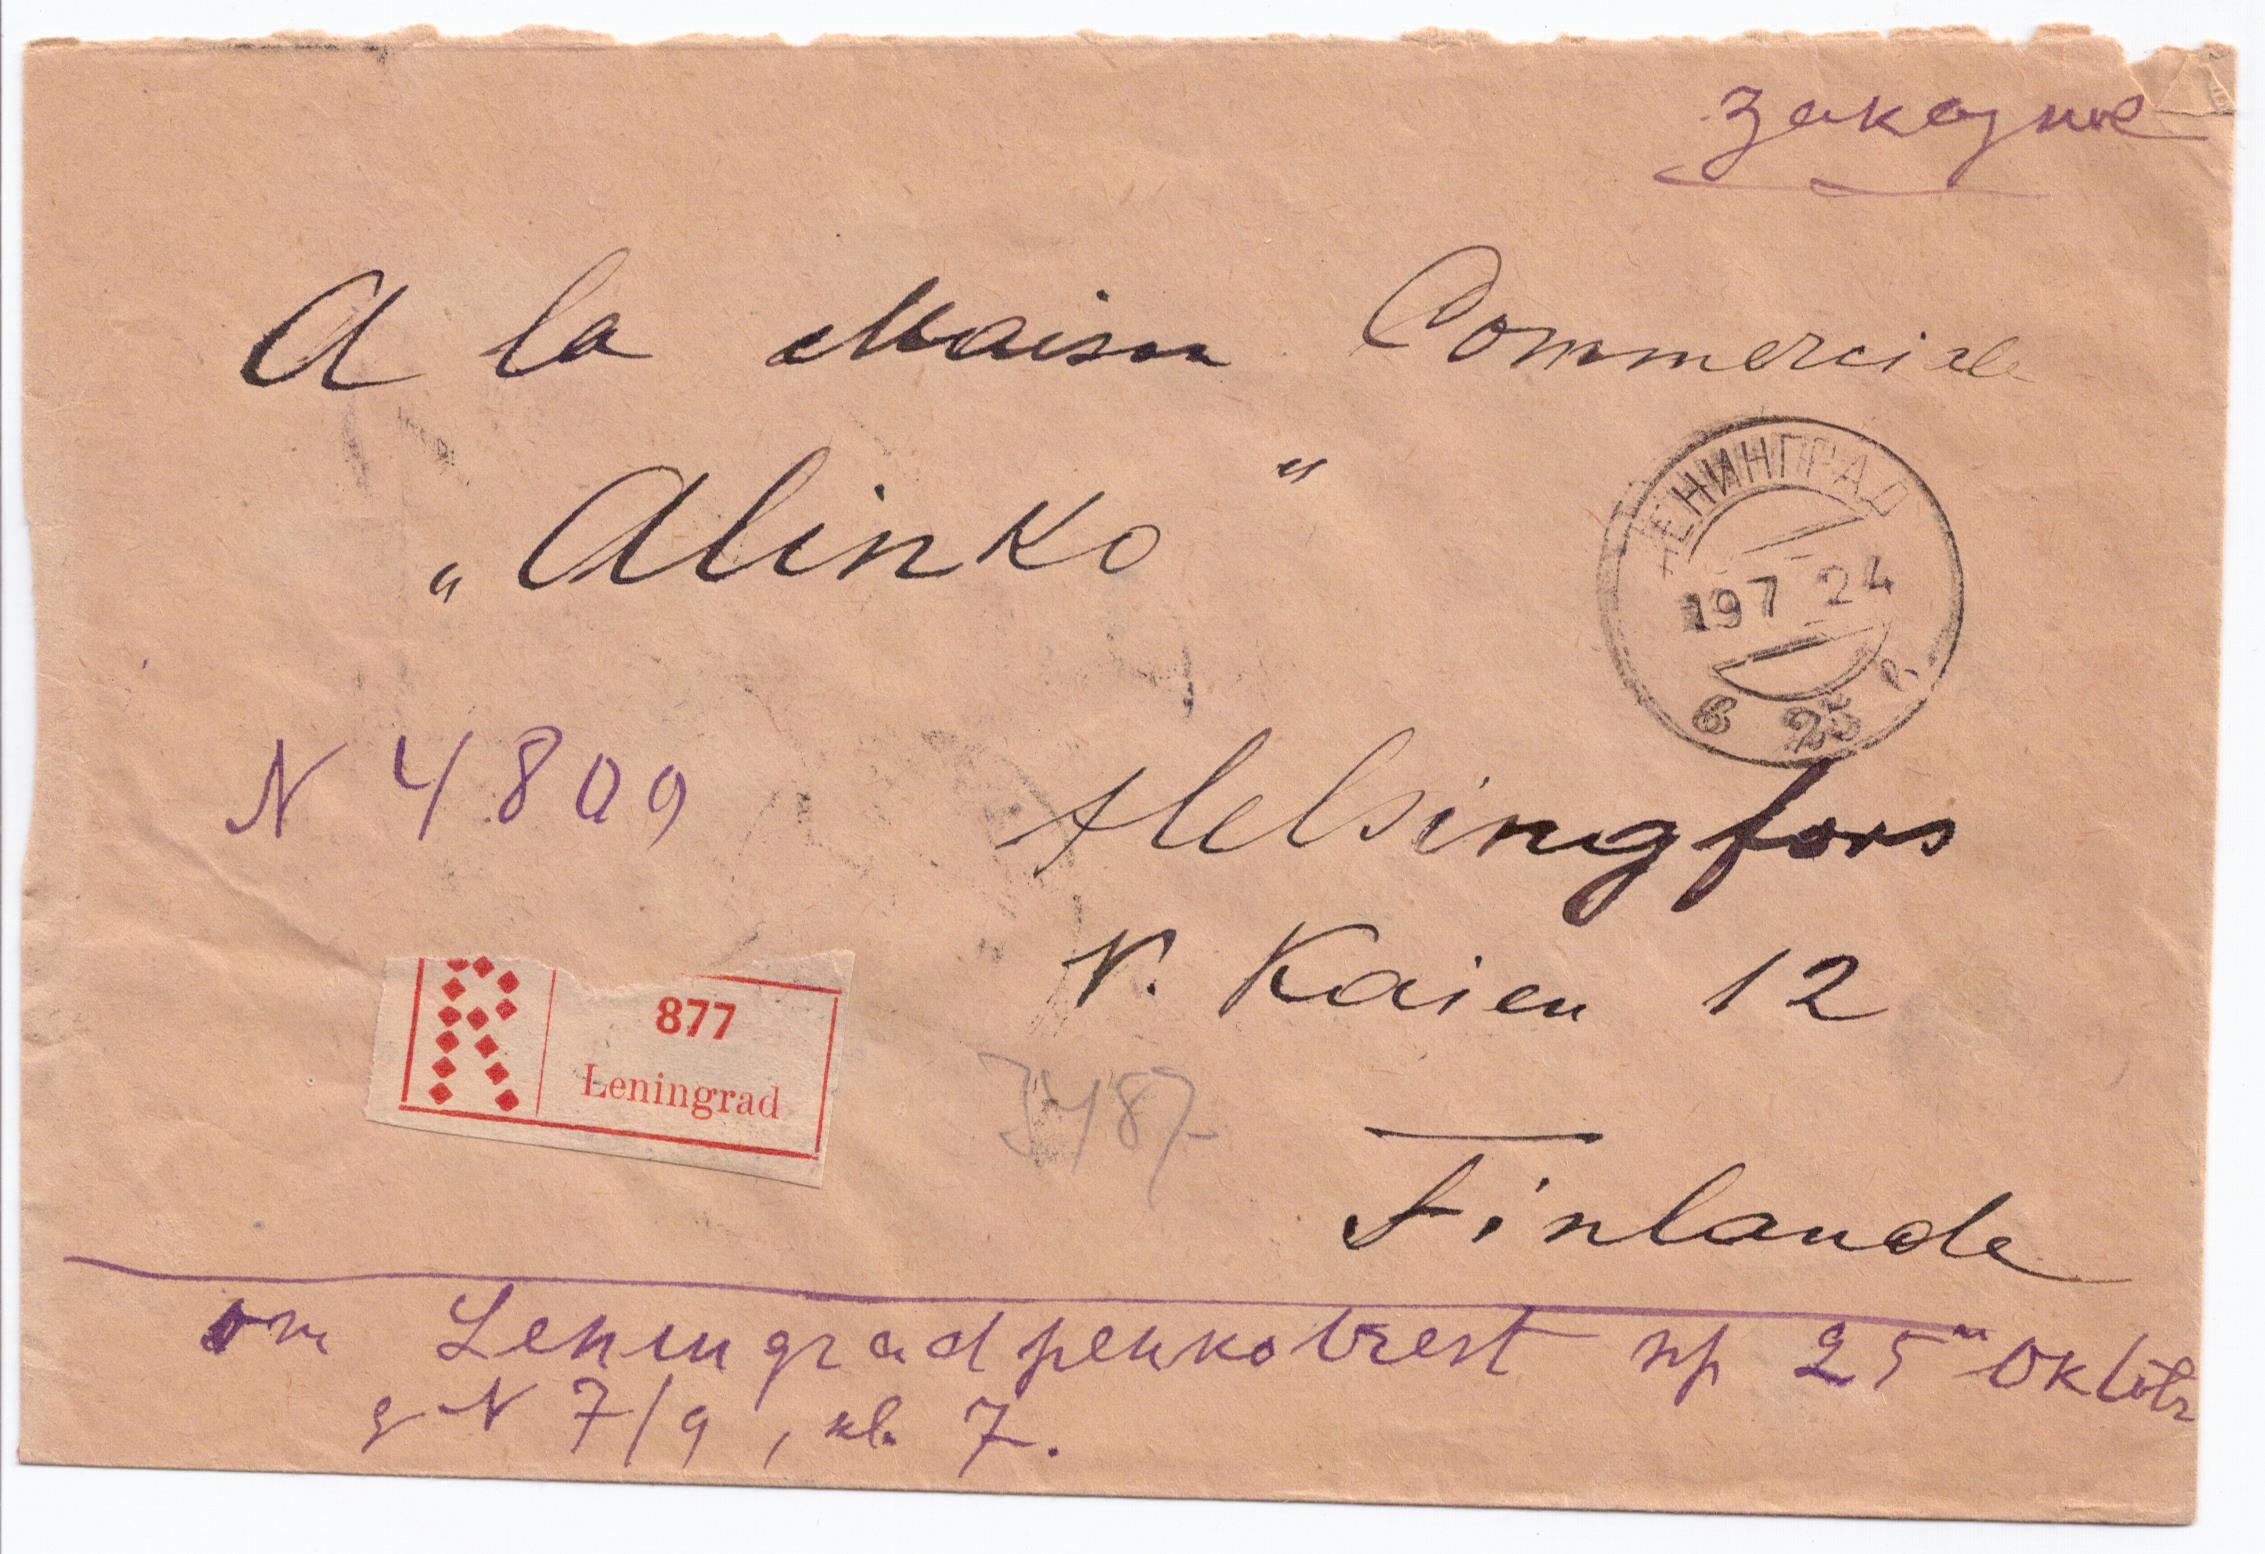 Заказное
A la Maison Commerciale
„Alinko“
ЛЕНИНГРАД
19 7 24
N 4809
Helsingfors
N. Kaien 12
R 877
Leningrad
Finlande
от Leningradpenkotrest пр 25го Oktobr
д N 7/9, кв. 7.